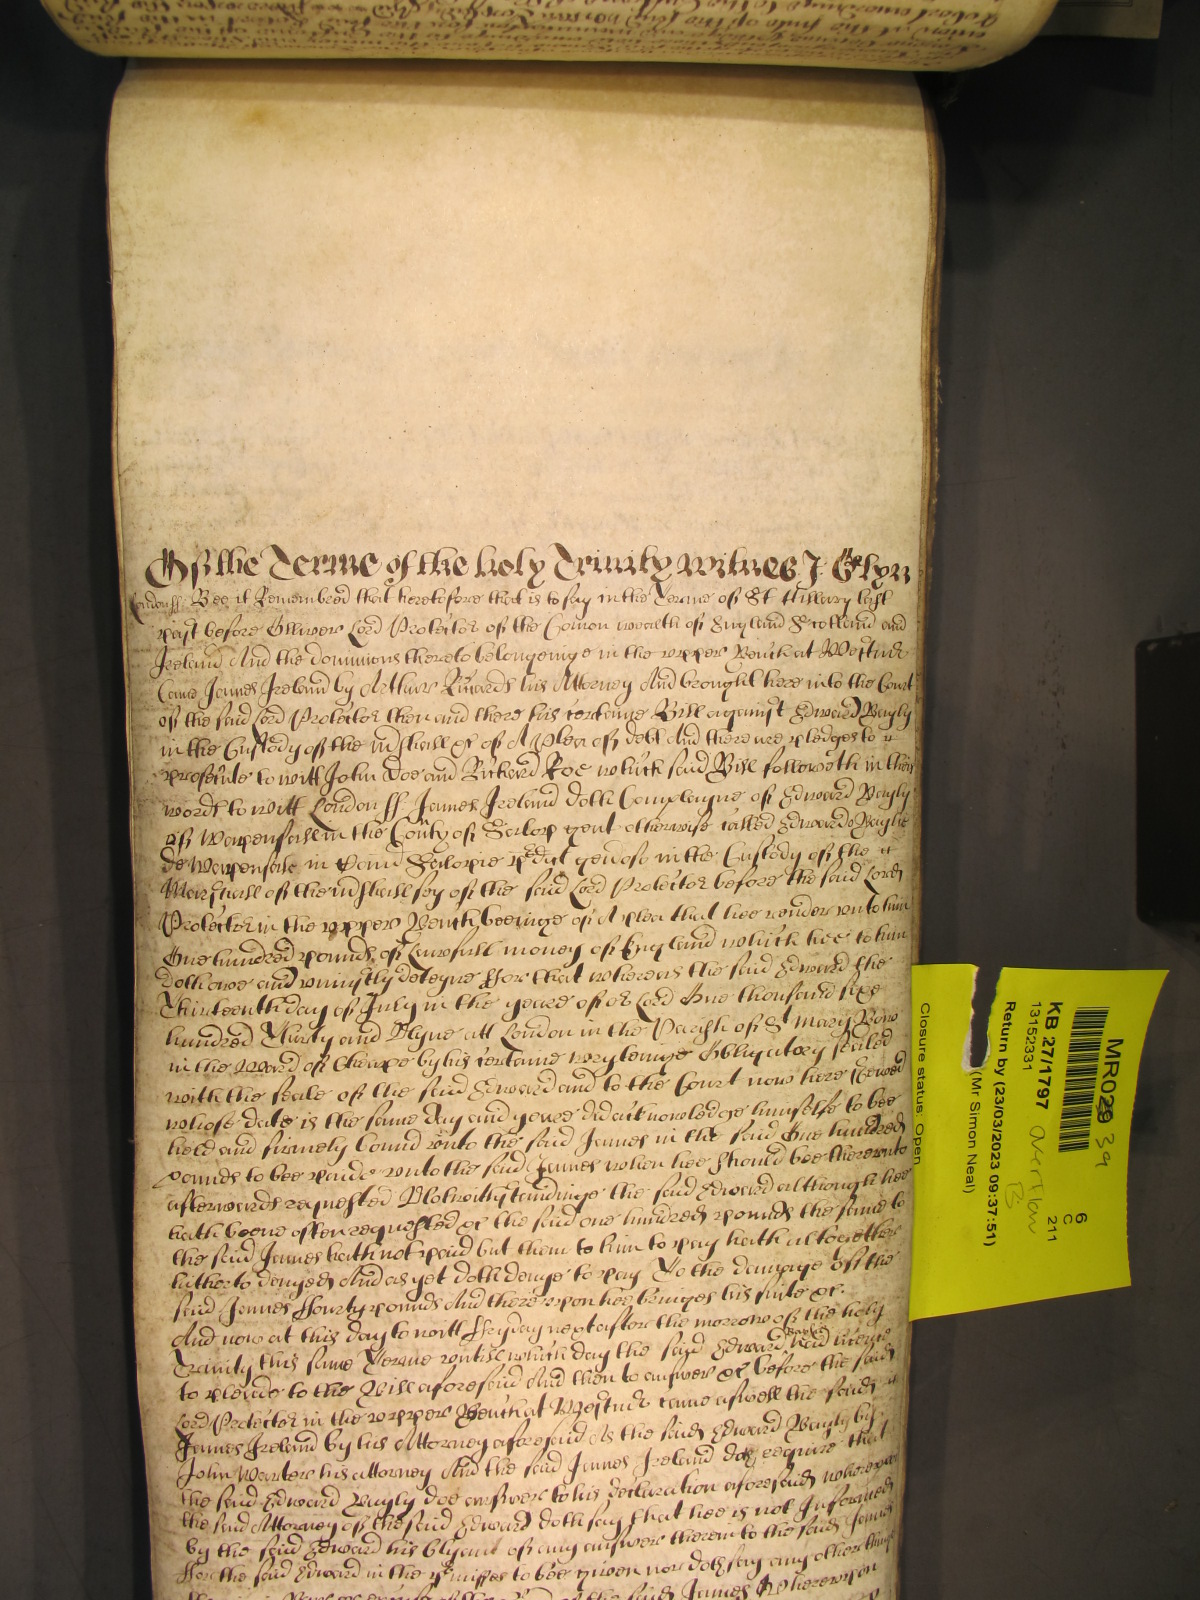 Of the Terme of the holy Trinity Witnes J: Glyn
London ss. Bee it Remembred that heretofore that is to say in the Terme of St Hillary last
past before Olliver Lord Protector of the Comon wealth of England Scotland and
Ireland And the dominions thereto belongeinge in the upper Bench at Westmr
Came James Ireland by Arthur his Attorney And brought here into the Court
of the said Lord Protector then and there his certaine Bill against Edward Bayly
in the Custody of the Marshall &c of A plea of debt And there are pledges to
prosecute to witt John Doe and Richard Roe which said Bill followeth in these
words to witt London ss. James Ireland doth Complayne of Edward Bayly
of in the County of Sallop gent otherwise called Edwardo Baylie
de in Com Sallopie pred genoso in the Custody of the
Marshall of the Marshallsey of the said Lord Protector before the said Lord
Protector in the upper Bench beeinge of A plea that hee render unto him
One hundred pounds of Lawfull money of England which hee to him
doth owe and uniustly deteyne ffor that whereas the said Edward the
Thirteenth day of July in the yeare of or Lord One thousand sixe
hundred Thirty and Nyne att London in the Parish of St Mary Bow
in the Ward of Cheape by his certaine wryteinge Obligatory sealed
with the seale of the said Edward and to the Court now here shewed
whose date is the same day and yeare did acknowledge himselfe to bee
held and firmely bound unto the said James in the said One hundred
pounds to bee paide unto the said James when hee should bee thereunto
afterwards requested Notwithstandinge the said Edward although hee
hath beene often requested &c the said one hundred pounds the same to
the said James hath not paid but them to him to pay hath altogether
hitherto denyed And as yet doth denye to pay To the damage of the
said James ffourty pounds And thereupon hee bringes his suite &c.
And now at this day to witt ffryday next after the morrow of the holy
Trinity this same Terme untill which day the said Edward Bayly had licence
to pleade to the Bill aforesaid And then to answer &c before the said
Lord Protector in the upper Bench at Westmr came aswell the said
James Ireland by his Attorney aforesaid As the said Edward Bayly by
John his Attorney And the said James Ireland doth require that
the said Edward Bayly doe answere to his declaration aforesaid whereupon
the said Attorney of the said Edward doth say that hee is not Informed
by the said Edward his Clyent of any answere therein to the said James
ffor the said Edward in the pmisses to bee given nor doth say any other thinge
of the said James Whereupon
MR029 39
6
C
211
KB 27/1797
13152331
Return by (23/03/2023 09:37:51)
(Mr Simon Neal)
Closure status: Open